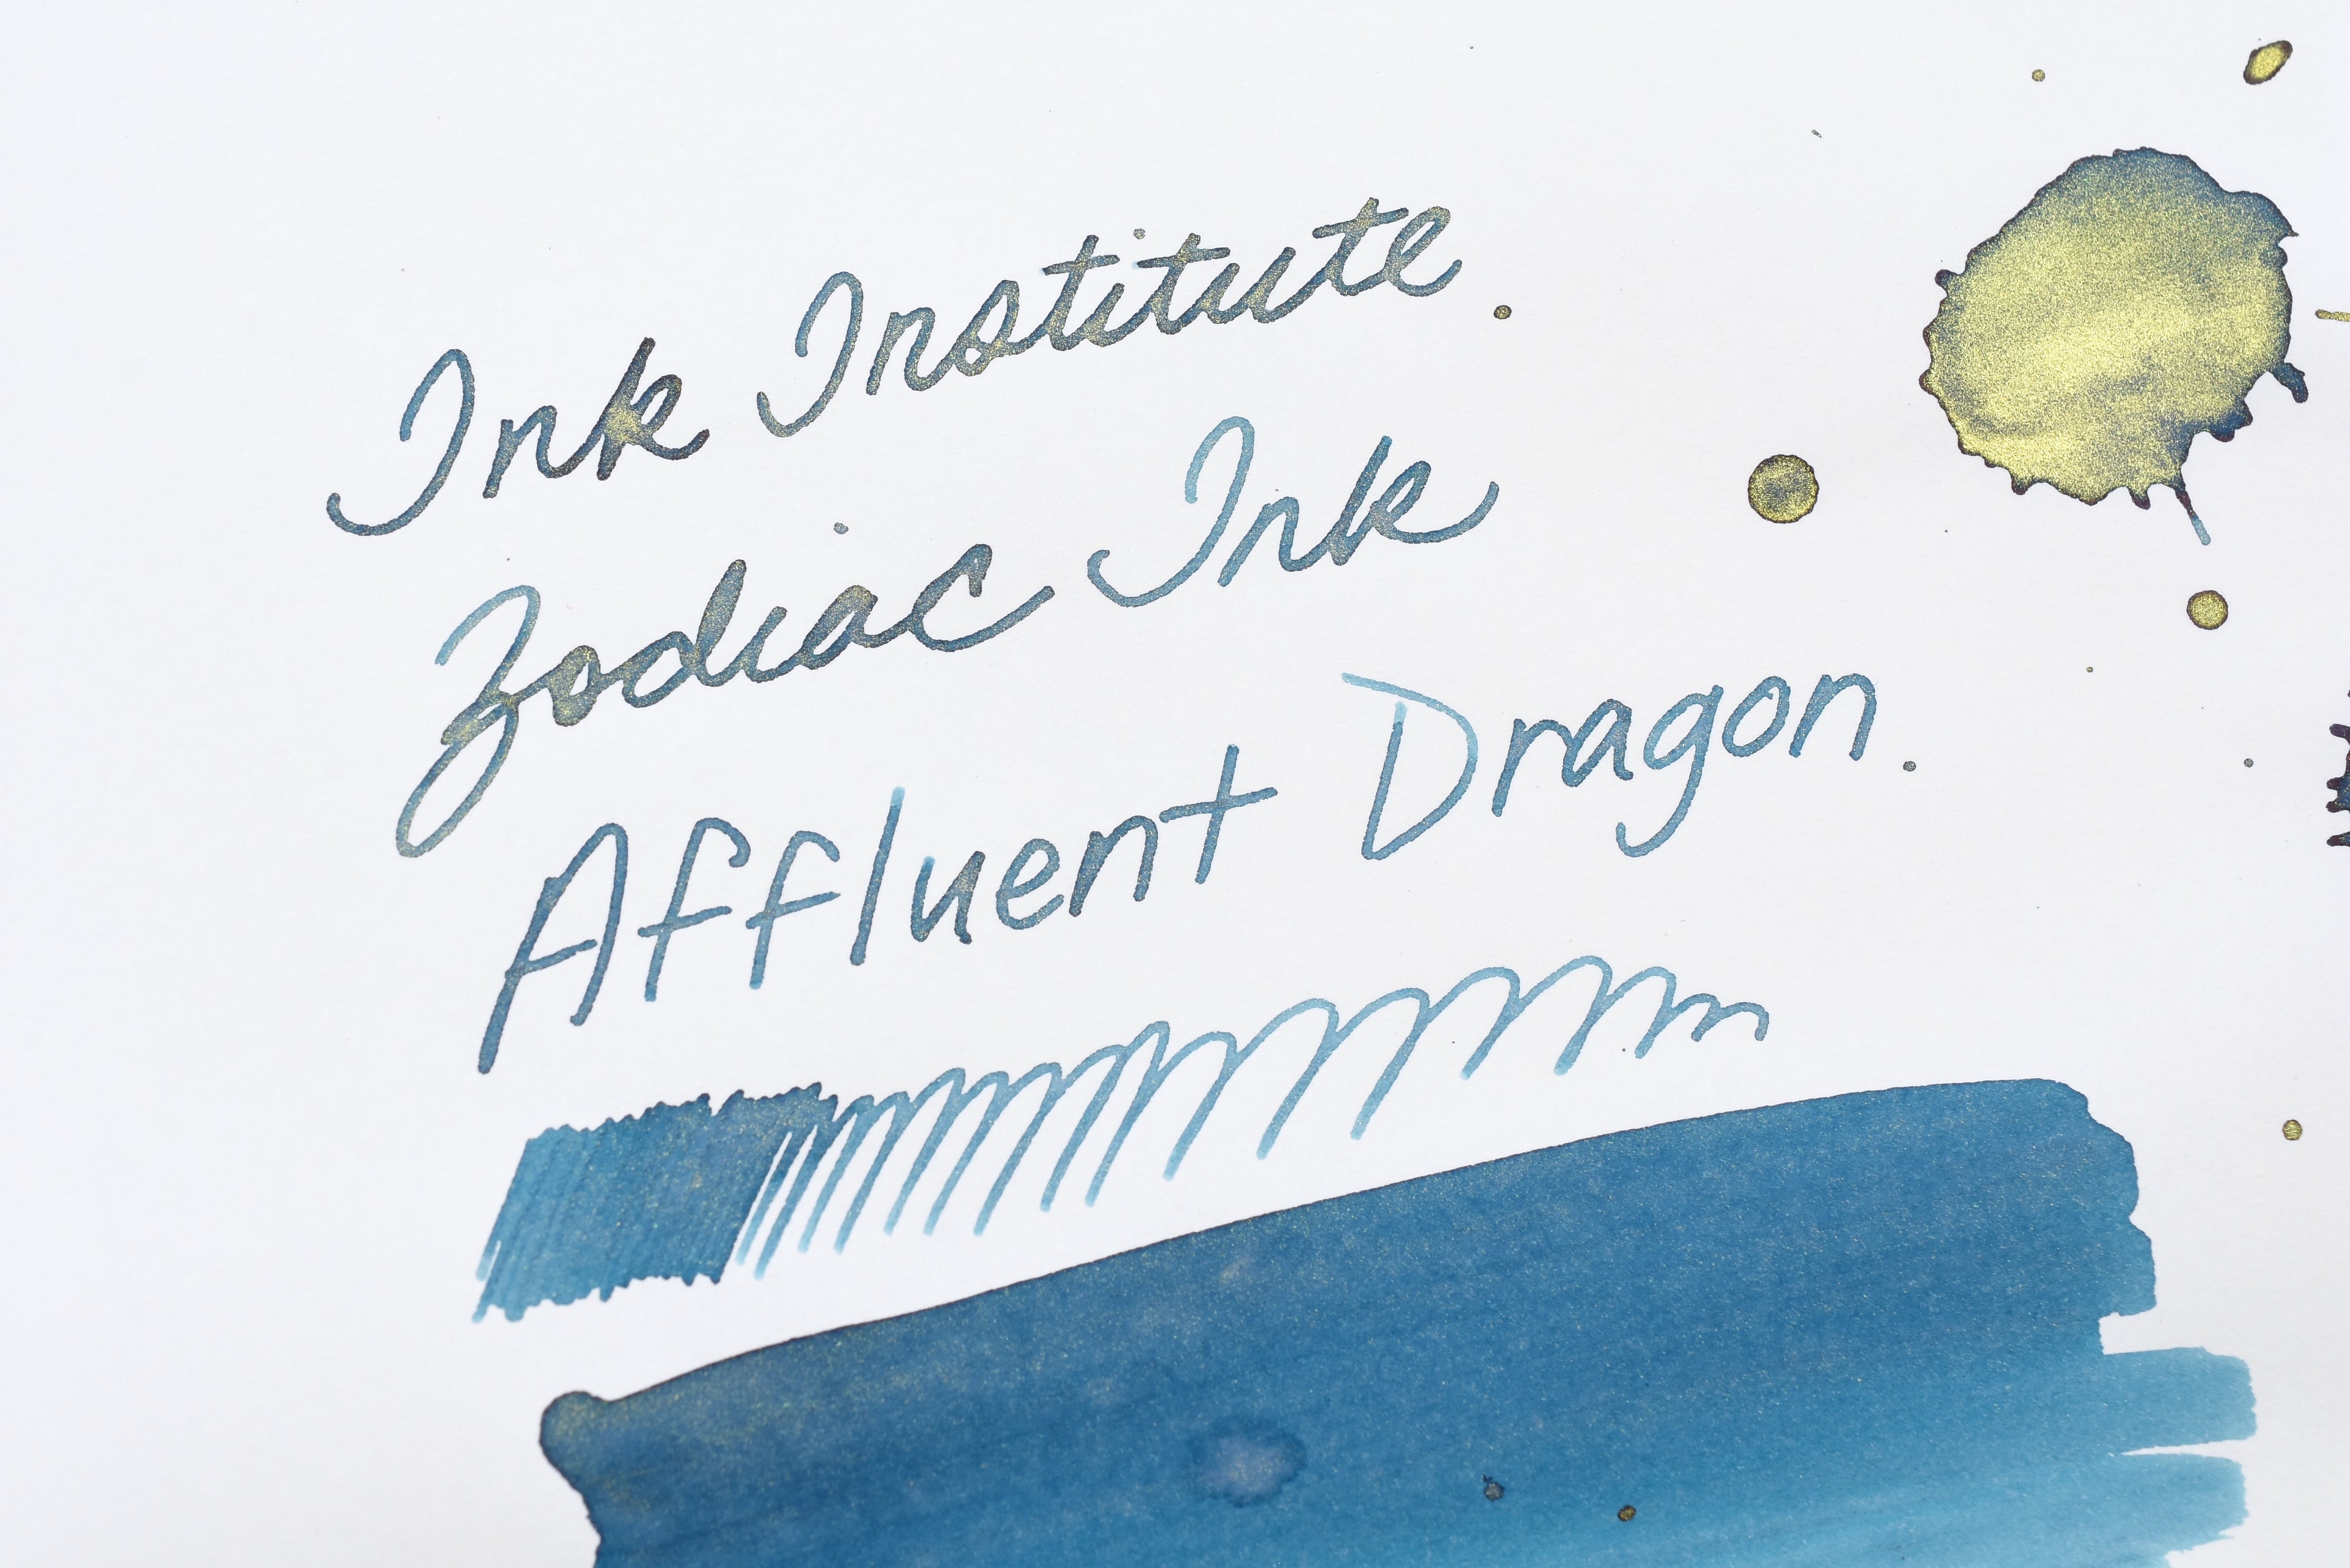 Ink Institute.
Zodiac Ink
Affluent Dragon.